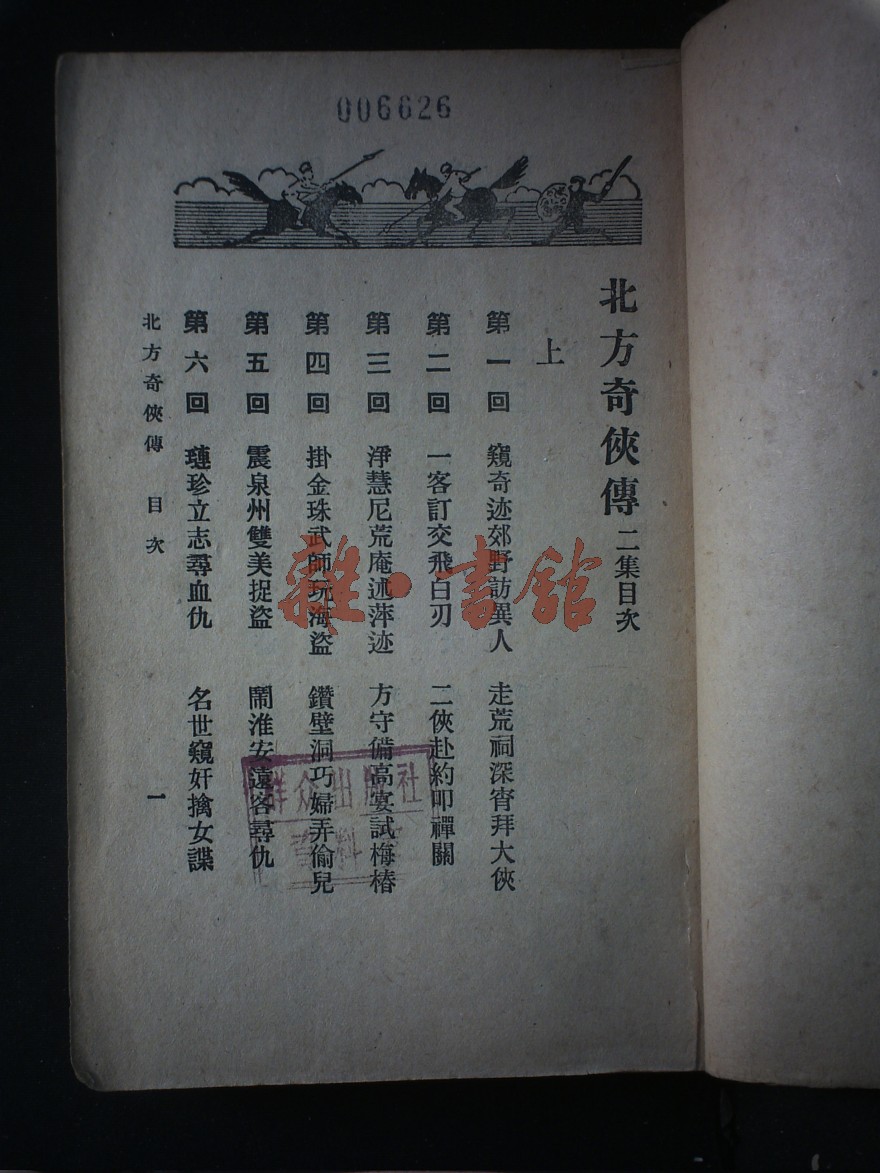 006626
北方奇俠傳 二集目次
上
第一回 窺奇迹郊野訪異人 走荒祠深宵拜大俠
第二回 一客訂交飛白刃 二俠赴約叩禪關
第三回 淨慧尼荒庵述萍迹 方守備高宴試梅樁
第四回 掛金珠武師玩海盜 鑽壁洞巧婦弄偷兒
第五回 震泉州雙美捉盜 鬧淮安遠客尋仇
第六回 璉珍立志尋血仇 名世窺奸擒女諜
北方奇俠傳 目次
一
雜·書館
群众出版社
資料